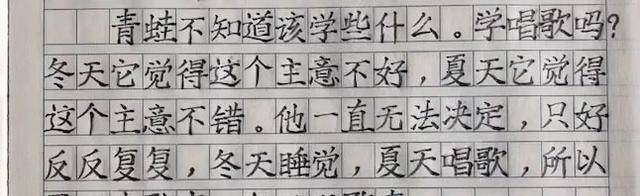 青蛙不知道该学些什么。学唱歌吗?
冬天它觉得这个主意不好，夏天它觉得
这个主意不错。他一直无法决定，只好
反反复复，冬天睡觉，夏天唱歌，所以